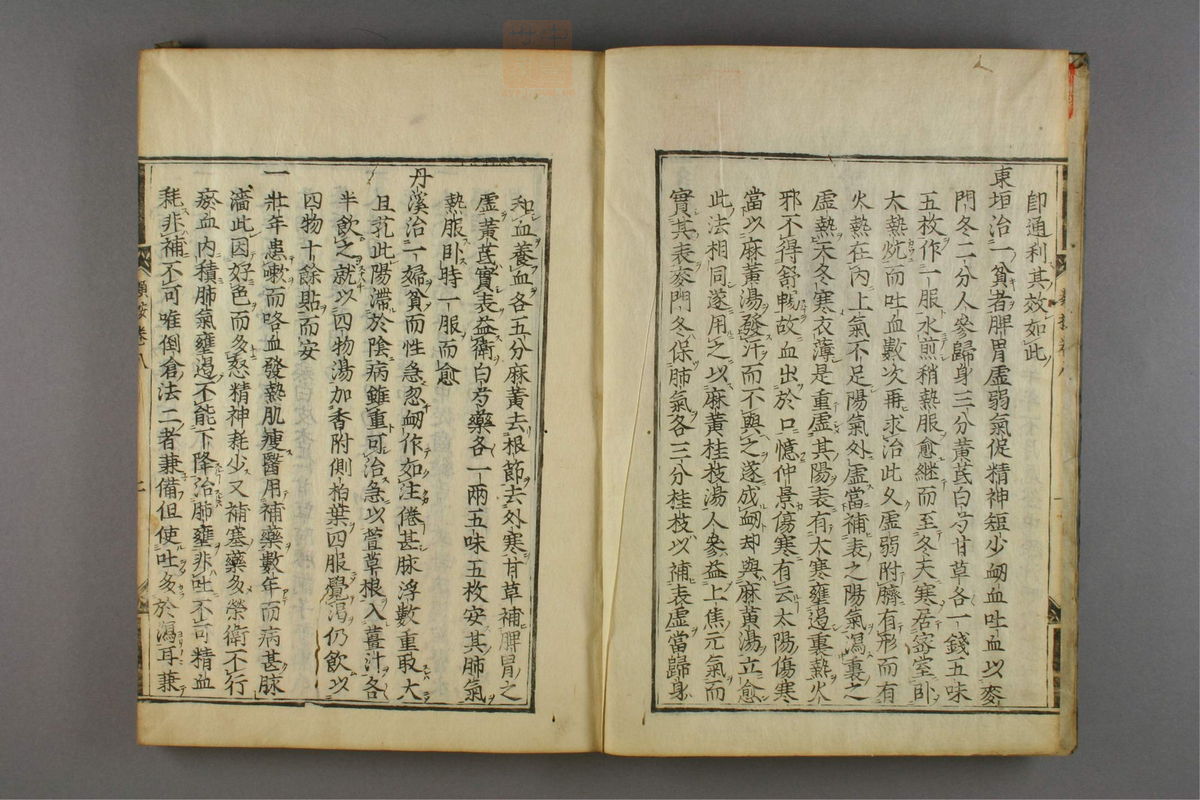 卽通利其效如此
東垣治一貧者脾胃虛弱氣促精神短少衂血吐血以麥
門冬二分人參歸身三分黃芪白芍甘草各一錢五味
五枚作一服水煎稍熱服愈繼而至冬天寒居密室臥
大熱炕而吐血數次再求治此久虛弱附臍有形而有
火熱在內上氣不足陽氣外虛當補表之陽氣瀉裏之
虛熱夫冬寒衣薄是重虛其陽表有太寒壅遏裏熱火
邪不得舒暢故血出於口憶仲景傷寒有云太陽傷寒
當以麻黃湯發汗而不與之遂成衂却與麻黃湯立愈
此法相同遂用之以麻黃桂枝湯人參益上焦元氣而
實其表麥門冬保肺氣各三分桂枝以補表虛當歸身
和血養血各五分麻黃去根節去外寒甘草補脾胃之
虛黃芪實表益衛白芍藥各一兩五味五枚安其肺氣
熱服臥時一服而愈
丹溪治一婦貧而性急忽衂作如注倦甚脉浮數重取大
且芤此陽滯於陰病雖重可治急以萱草根入薑汁各
半飲之就以四物湯加香附側柏葉四服覺渴仍飲以
四物十餘貼而安
一壯年患嗽而咯血發熱肌瘦醫用補藥數年而病甚脉
濇此因好色而多怒精神耗少又補塞藥多榮衛不行
瘀血內積肺氣壅遏不能下降治肺壅非吐不可精血
耗非補不可唯倒倉法二者兼備但使吐多於瀉耳兼
類按卷八